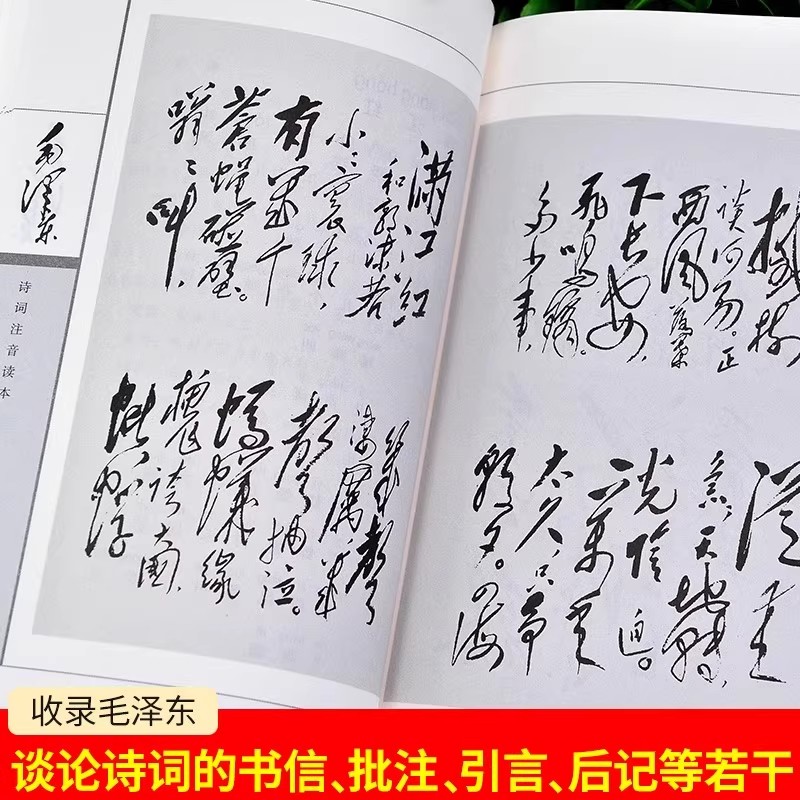 毛泽东
诗词注音读本
满江红
和郭沫若
小小寰球,
有几个
蒼蝇碰壁。
嗡嗡叫,
几聲
凄厲,几
聲抽泣。
螞蟻缘
槐誇大國,
蚍蜉
撼树
谈何易。正
西風落葉
下长安,
飛鸣镝。
多少事,
從来
急。天地轉,
光陰迫。
一万年
太久,只争
朝夕。四海
收录毛泽东
谈论诗词的书信、批注、引言、后记等若干